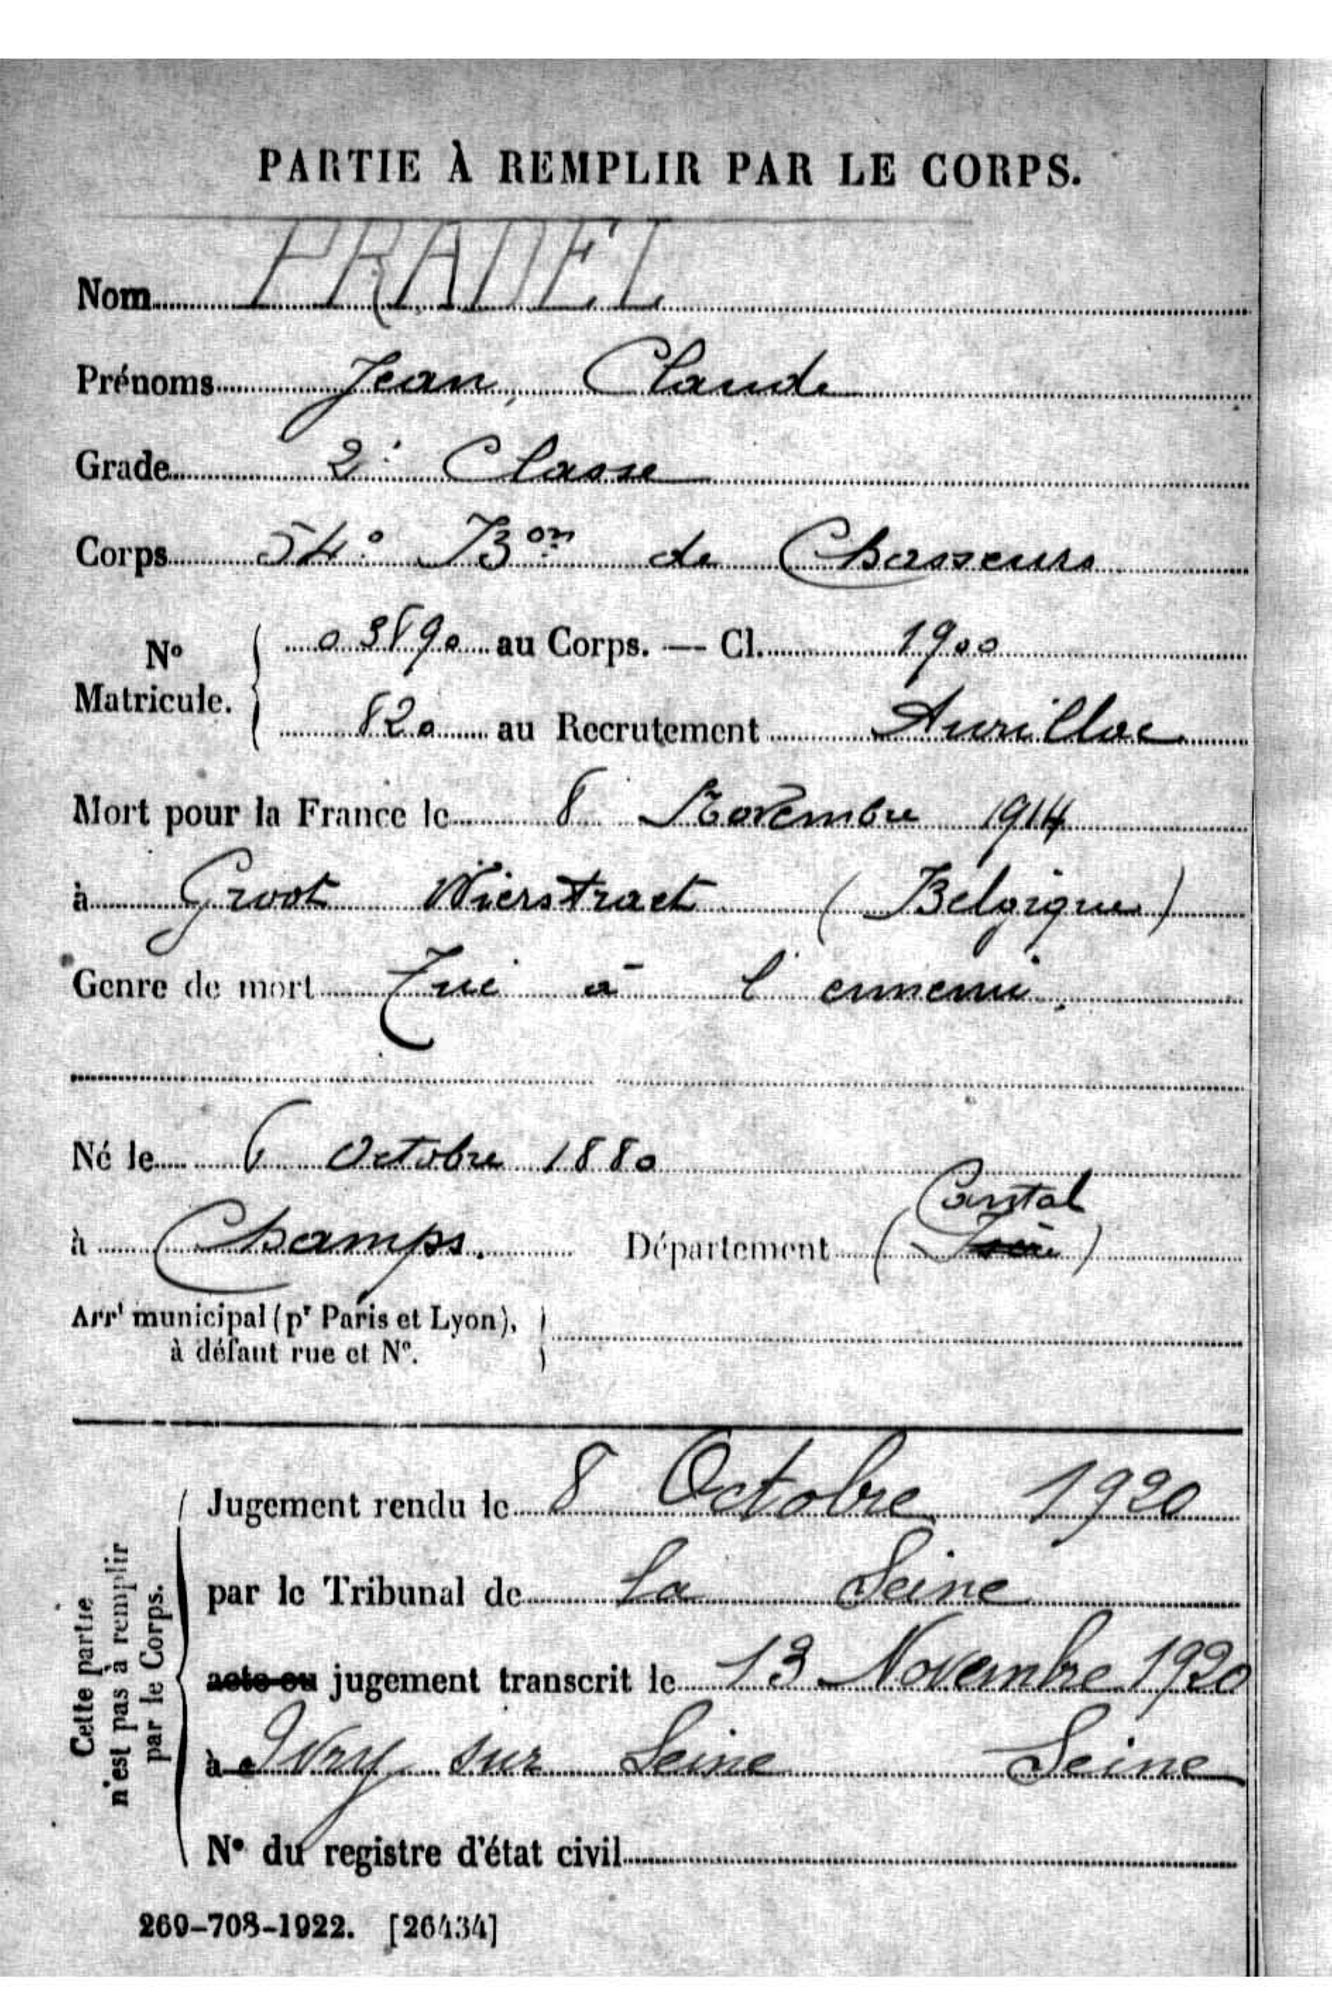 PARTIE À REMPLIR PAR LE CORPS.
Nom PRADEL
Prénoms Jean, Claude
Grade 2e Classe
Corps 54e Bon de Chasseurs
No Matricule. 03890 au Corps. — Cl. 1900
820 au Recrutement Aurillac
Mort pour la France le 8 Novembre 1914
à Groot Wierstraet (Belgique)
Genre de mort Tué à l'ennemi.
Né le 6 Octobre 1880
Cantal
à Champs. Département (Isère)
Arrt municipal (pr Paris et Lyon),
à défaut rue et No.
Cette partie n'est pas à remplir par le Corps.
Jugement rendu le 8 Octobre 1920
par le Tribunal de la Seine
acte ou jugement transcrit le 13 Novembre 1920
à Ivry sur Seine Seine
No du registre d'état civil
260-708-1922. [26434]